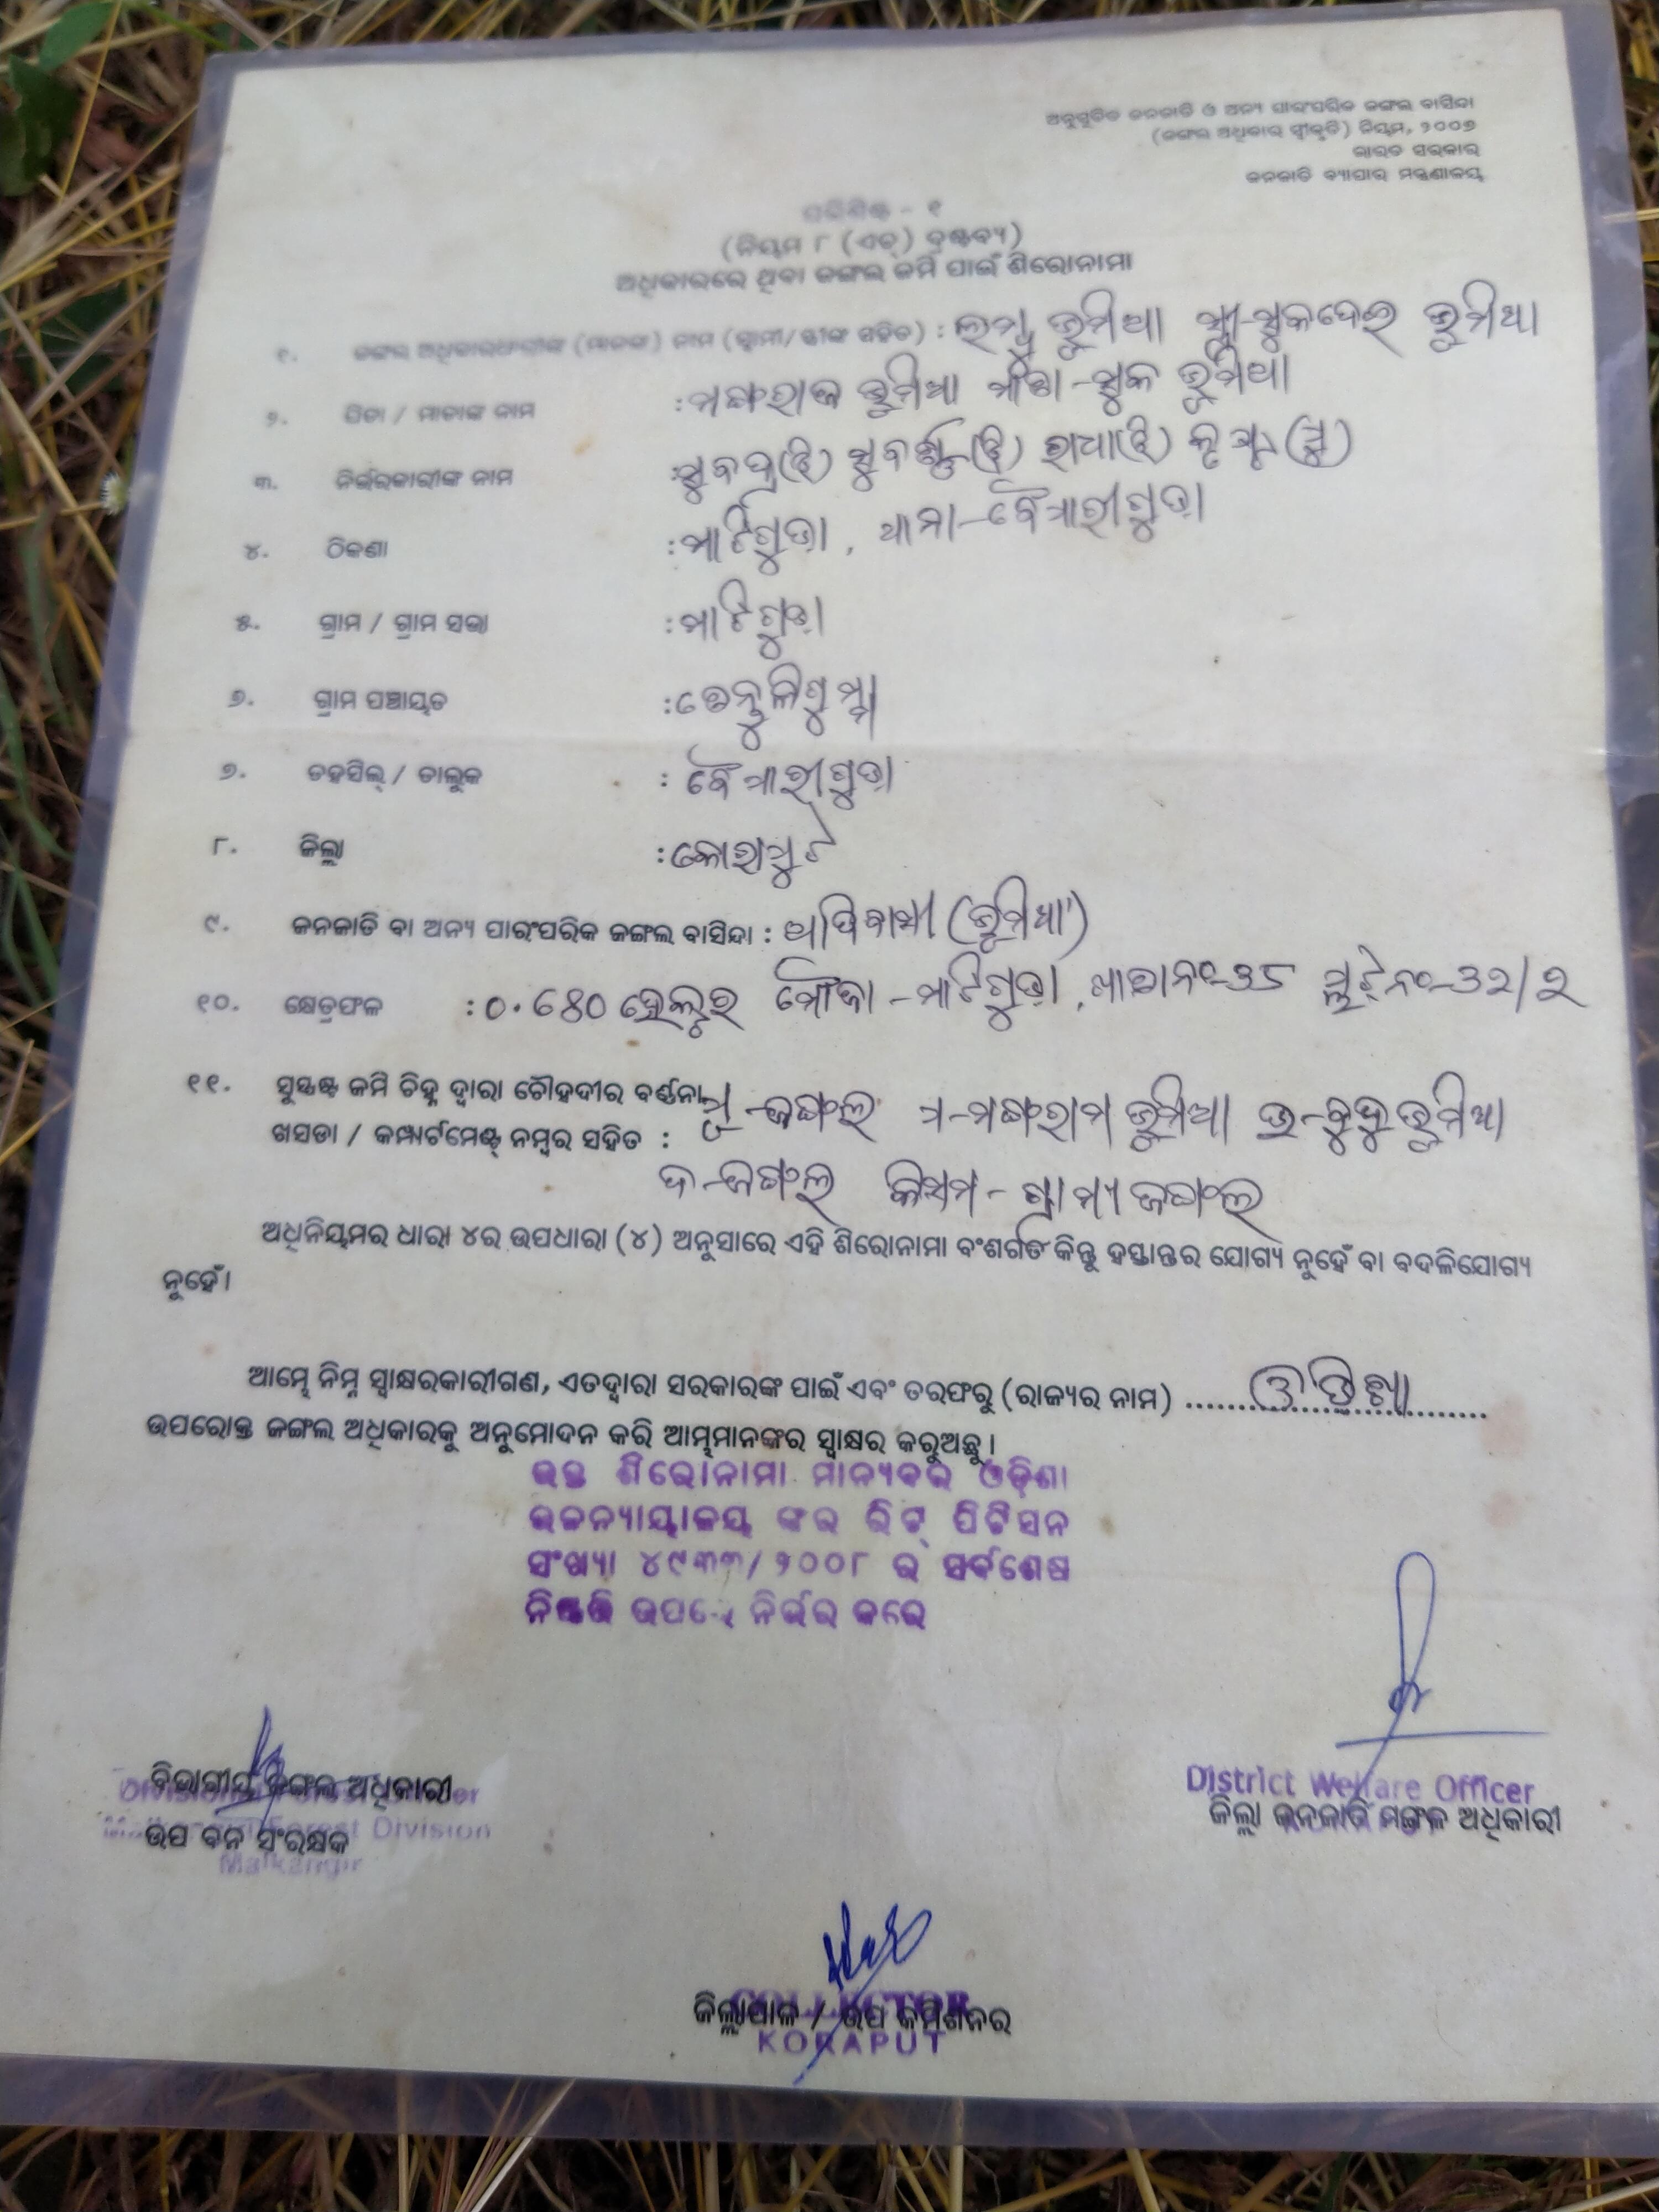 ଅନୁସୂଚିତ ଜନଜାତି ଓ ଅନ୍ୟ ପାରଂପରିକ ଜଙ୍ଗଲ ବାସିନ୍ଦା
(ଜଙ୍ଗଲ ଅଧିକାର ସ୍ୱୀକୃତି) ନିୟମ, ୨୦୦୭
ଭାରତ ସରକାର
ଜନଜାତି ବ୍ୟାପାର ମନ୍ତ୍ରଣାଳୟ
ପରିଶିଷ୍ଟ - ୧
(ନିୟମ ୮ (ଏଚ୍) ଦ୍ରଷ୍ଟବ୍ୟ)
ଅଧିକାରରେ ଥିବା ଜଙ୍ଗଲ ଜମି ପାଇଁ ଶିରୋନାମା
୧. ଜଙ୍ଗଲ ଅଧିକାରଧାରୀଙ୍କ (ମାନଙ୍କ) ନାମ (ସ୍ୱାମୀ/ ସ୍ତ୍ରୀଙ୍କ ସହିତ) : ଭୂମିଆ ସ୍ତ୍ରୀ-ସୁକଦେଇ ଭୂମିଆ
୨. ପିତା / ମାତାଙ୍କ ନାମ : ଭୂମିଆ ମାତା-ସୁକ ଭୂମିଆ
୩. ନିର୍ଭରକାରୀଙ୍କ ନାମ : ରାଧା(ଝି)
୪. ଠିକଣା : ମାଟିଗୁଡା, ଥାନା-ବୈପାରୀଗୁଡା
୫. ଗ୍ରାମ / ଗ୍ରାମ ସଭା : ମାଟିଗୁଡା
୬. ଗ୍ରାମ ପଞ୍ଚାୟତ : ତେନ୍ତୁଳିଗୁମ୍ମା
୭. ତହସିଲ୍ / ତାଲୁକ : ବୈପାରୀଗୁଡା
୮. ଜିଲ୍ଲା : କୋରାପୁଟ
୯. ଜନଜାତି ବା ଅନ୍ୟ ପାରଂପରିକ ଜଙ୍ଗଲ ବାସିନ୍ଦା : ଆଦିବାସୀ (ଭୂମିଆ)
୧୦. କ୍ଷେତ୍ରଫଳ : ହେକ୍ଟର ମୌଜା-ମାଟିଗୁଡା, ଖାତା ନଂ-୩୫ ପ୍ଲଟ୍ ନଂ-୩୨/୨
୧୧. ସୁସ୍ପଷ୍ଟ ଜମି ଚିହ୍ନ ଦ୍ୱାରା ଚୌହଦୀର ବର୍ଣ୍ଣନା ପୂ-ଜଙ୍ଗଲ ପ-ମଙ୍ଗରାମ ଭୂମିଆ ଉ-ବୁଦୁ ଭୂମିଆ
ଖସଡା / କମ୍ପାର୍ଟମେଣ୍ଟ୍ ନମ୍ବର ସହିତ :
ଦ-ଜଙ୍ଗଲ କିସମ-ଗ୍ରାମ୍ୟ ଜଙ୍ଗଲ
ଅଧିନିୟମର ଧାରା ୪ର ଉପଧାରା (୪) ଅନୁସାରେ ଏହି ଶିରୋନାମା ବଂଶଗତ କିନ୍ତୁ ହସ୍ତାନ୍ତର ଯୋଗ୍ୟ ନୁହେଁ ବା ବଦଳିଯୋଗ୍ୟ
ନୁହେଁ।
ଆମ୍ଭେ ନିମ୍ନ ସ୍ୱାକ୍ଷରକାରୀଗଣ, ଏତଦ୍ୱାରା ସରକାରଙ୍କ ପାଇଁ ଏବଂ ତରଫରୁ (ରାଜ୍ୟର ନାମ) ........ଓଡିଶା........
ଉପରୋକ୍ତ ଜଙ୍ଗଲ ଅଧିକାରକୁ ଅନୁମୋଦନ କରି ଆମ୍ଭମାନଙ୍କର ସ୍ୱାକ୍ଷର କରୁଅଛୁ।
ଉକ୍ତ ଶିରୋନାମା ମାନ୍ୟବର ଓଡ଼ିଶା
ଉଚ୍ଚନ୍ୟାୟାଳୟ ଙ୍କର ରିଟ୍ ପିଟିସନ
ସଂଖ୍ୟା ୪୯୩୩/୨୦୦୮ ର ସର୍ବଶେଷ
ନିଷ୍ପତ୍ତି ଉପରେ ନିର୍ଭର କରେ
ବିଭାଗୀୟ ଜଙ୍ଗଲ ଅଧିକାରୀ
ଉପ ବନ ସଂରକ୍ଷକ
Forest Division
Malkangir
District Welfare Officer
ଜିଲ୍ଲା ଜନଜାତି ମଙ୍ଗଳ ଅଧିକାରୀ
COLLECTOR
ଜିଲ୍ଲାପାଳ / ଉପ କମିଶନର
KORAPUT